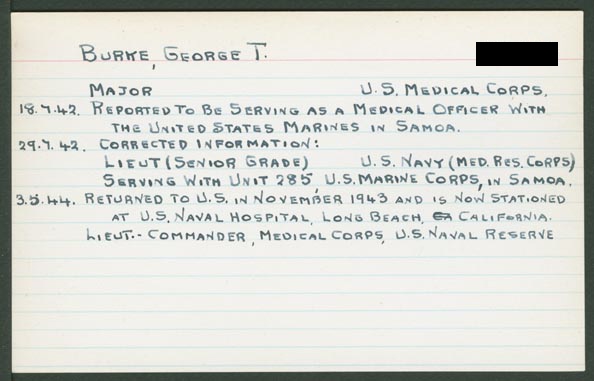 BURKE, GEORGE T.
MAJOR U.S. MEDICAL CORPS.
18.7.42. REPORTED TO BE SERVING AS A MEDICAL OFFICER WITH
THE UNITED STATES MARINES IN SAMOA.
29.7.42. CORRECTED INFORMATION:
LIEUT (SENIOR GRADE) U.S. NAVY (MED. RES. CORPS)
SERVING WITH UNIT 285, U.S. MARINE CORPS, IN SAMOA.
3.5.44. RETURNED TO U.S. IN NOVEMBER 1943 AND IS NOW STATIONED
AT U.S. NAVAL HOSPITAL, LONG BEACH, CALIFORNIA.
LIEUT.-COMMANDER, MEDICAL CORPS, U.S. NAVAL RESERVE